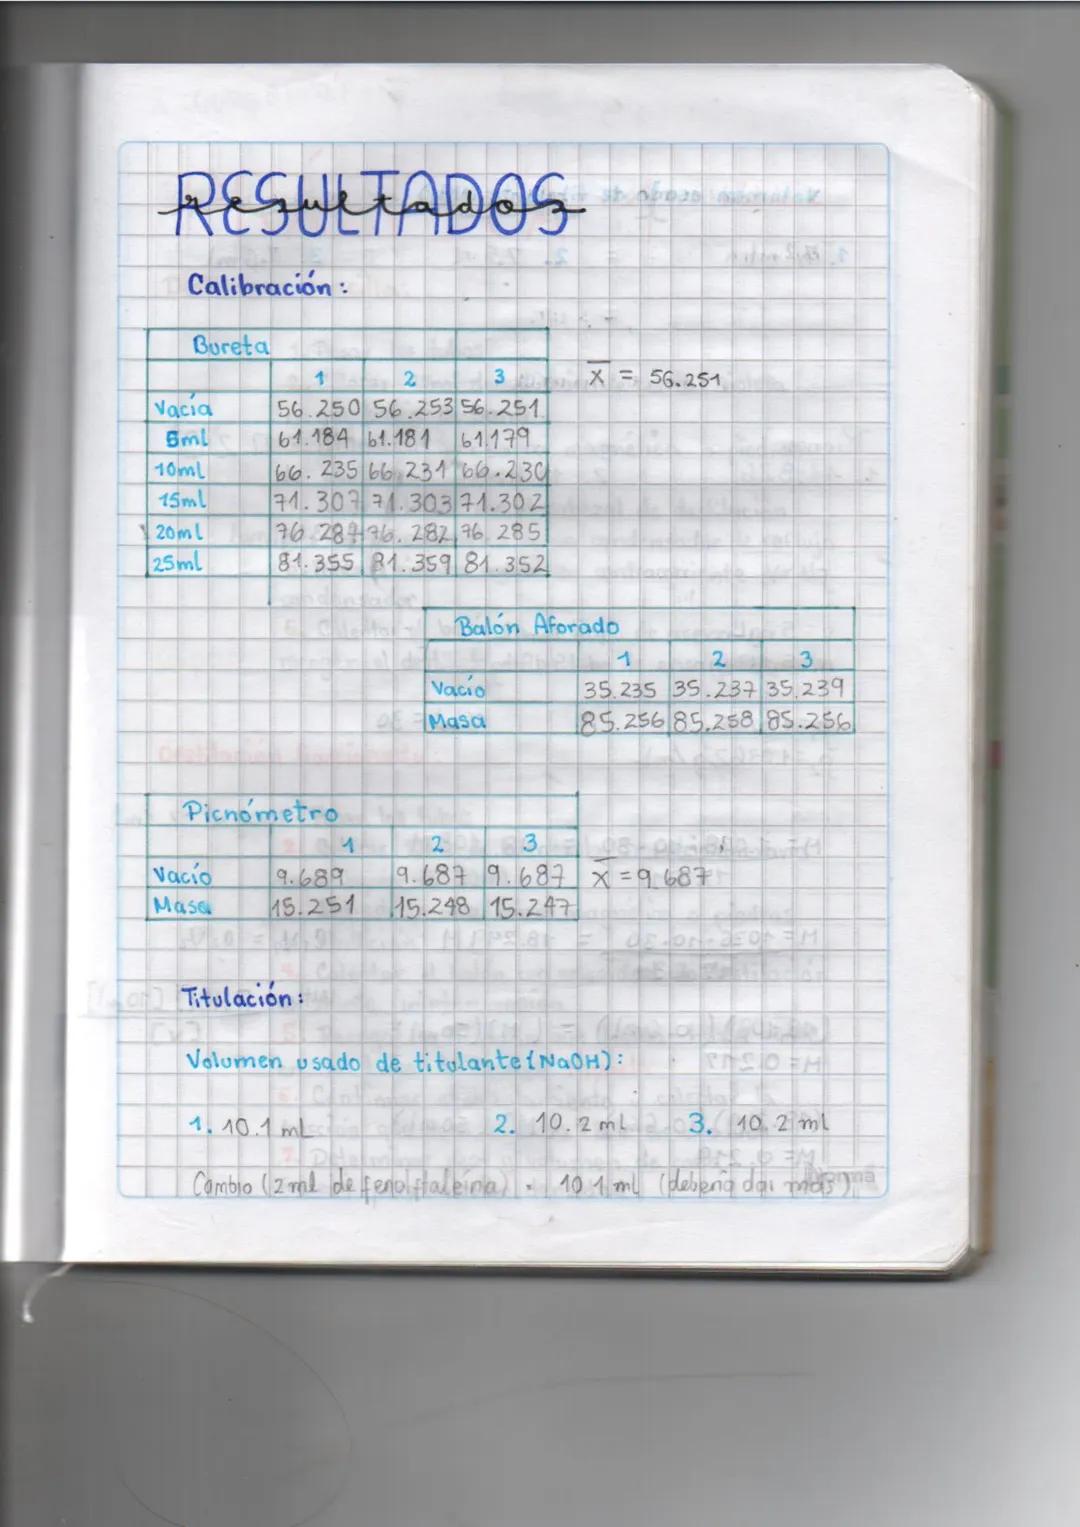 RESULTADOS
resultados
Calibración:
Bureta
1 2 3
Vacía 56.250 56.253 56.251
5ml 61.184 61.181 61.179
10ml 66.235 66.231 66.230
15ml 71.307 71.303 71.302
20ml 76.284 76.282 76.285
25ml 81.355 81.359 81.352
X = 56.251
Balón Aforado
1 2 3
Vacío 35.235 35.237 35.239
Masa 85.256 85.258 85.256
Picnómetro
1 2 3
Vacío 9.689 9.687 9.687
Masa 15.251 15.248 15.247
X = 9.687
Titulación:
Volumen usado de titulante (NaOH):
1. 10.1 mL 2. 10.2 mL 3. 10.2 mL
Cambio (2ml de fenolftaleína) = 10.1 ml (debería dar más)
Norma